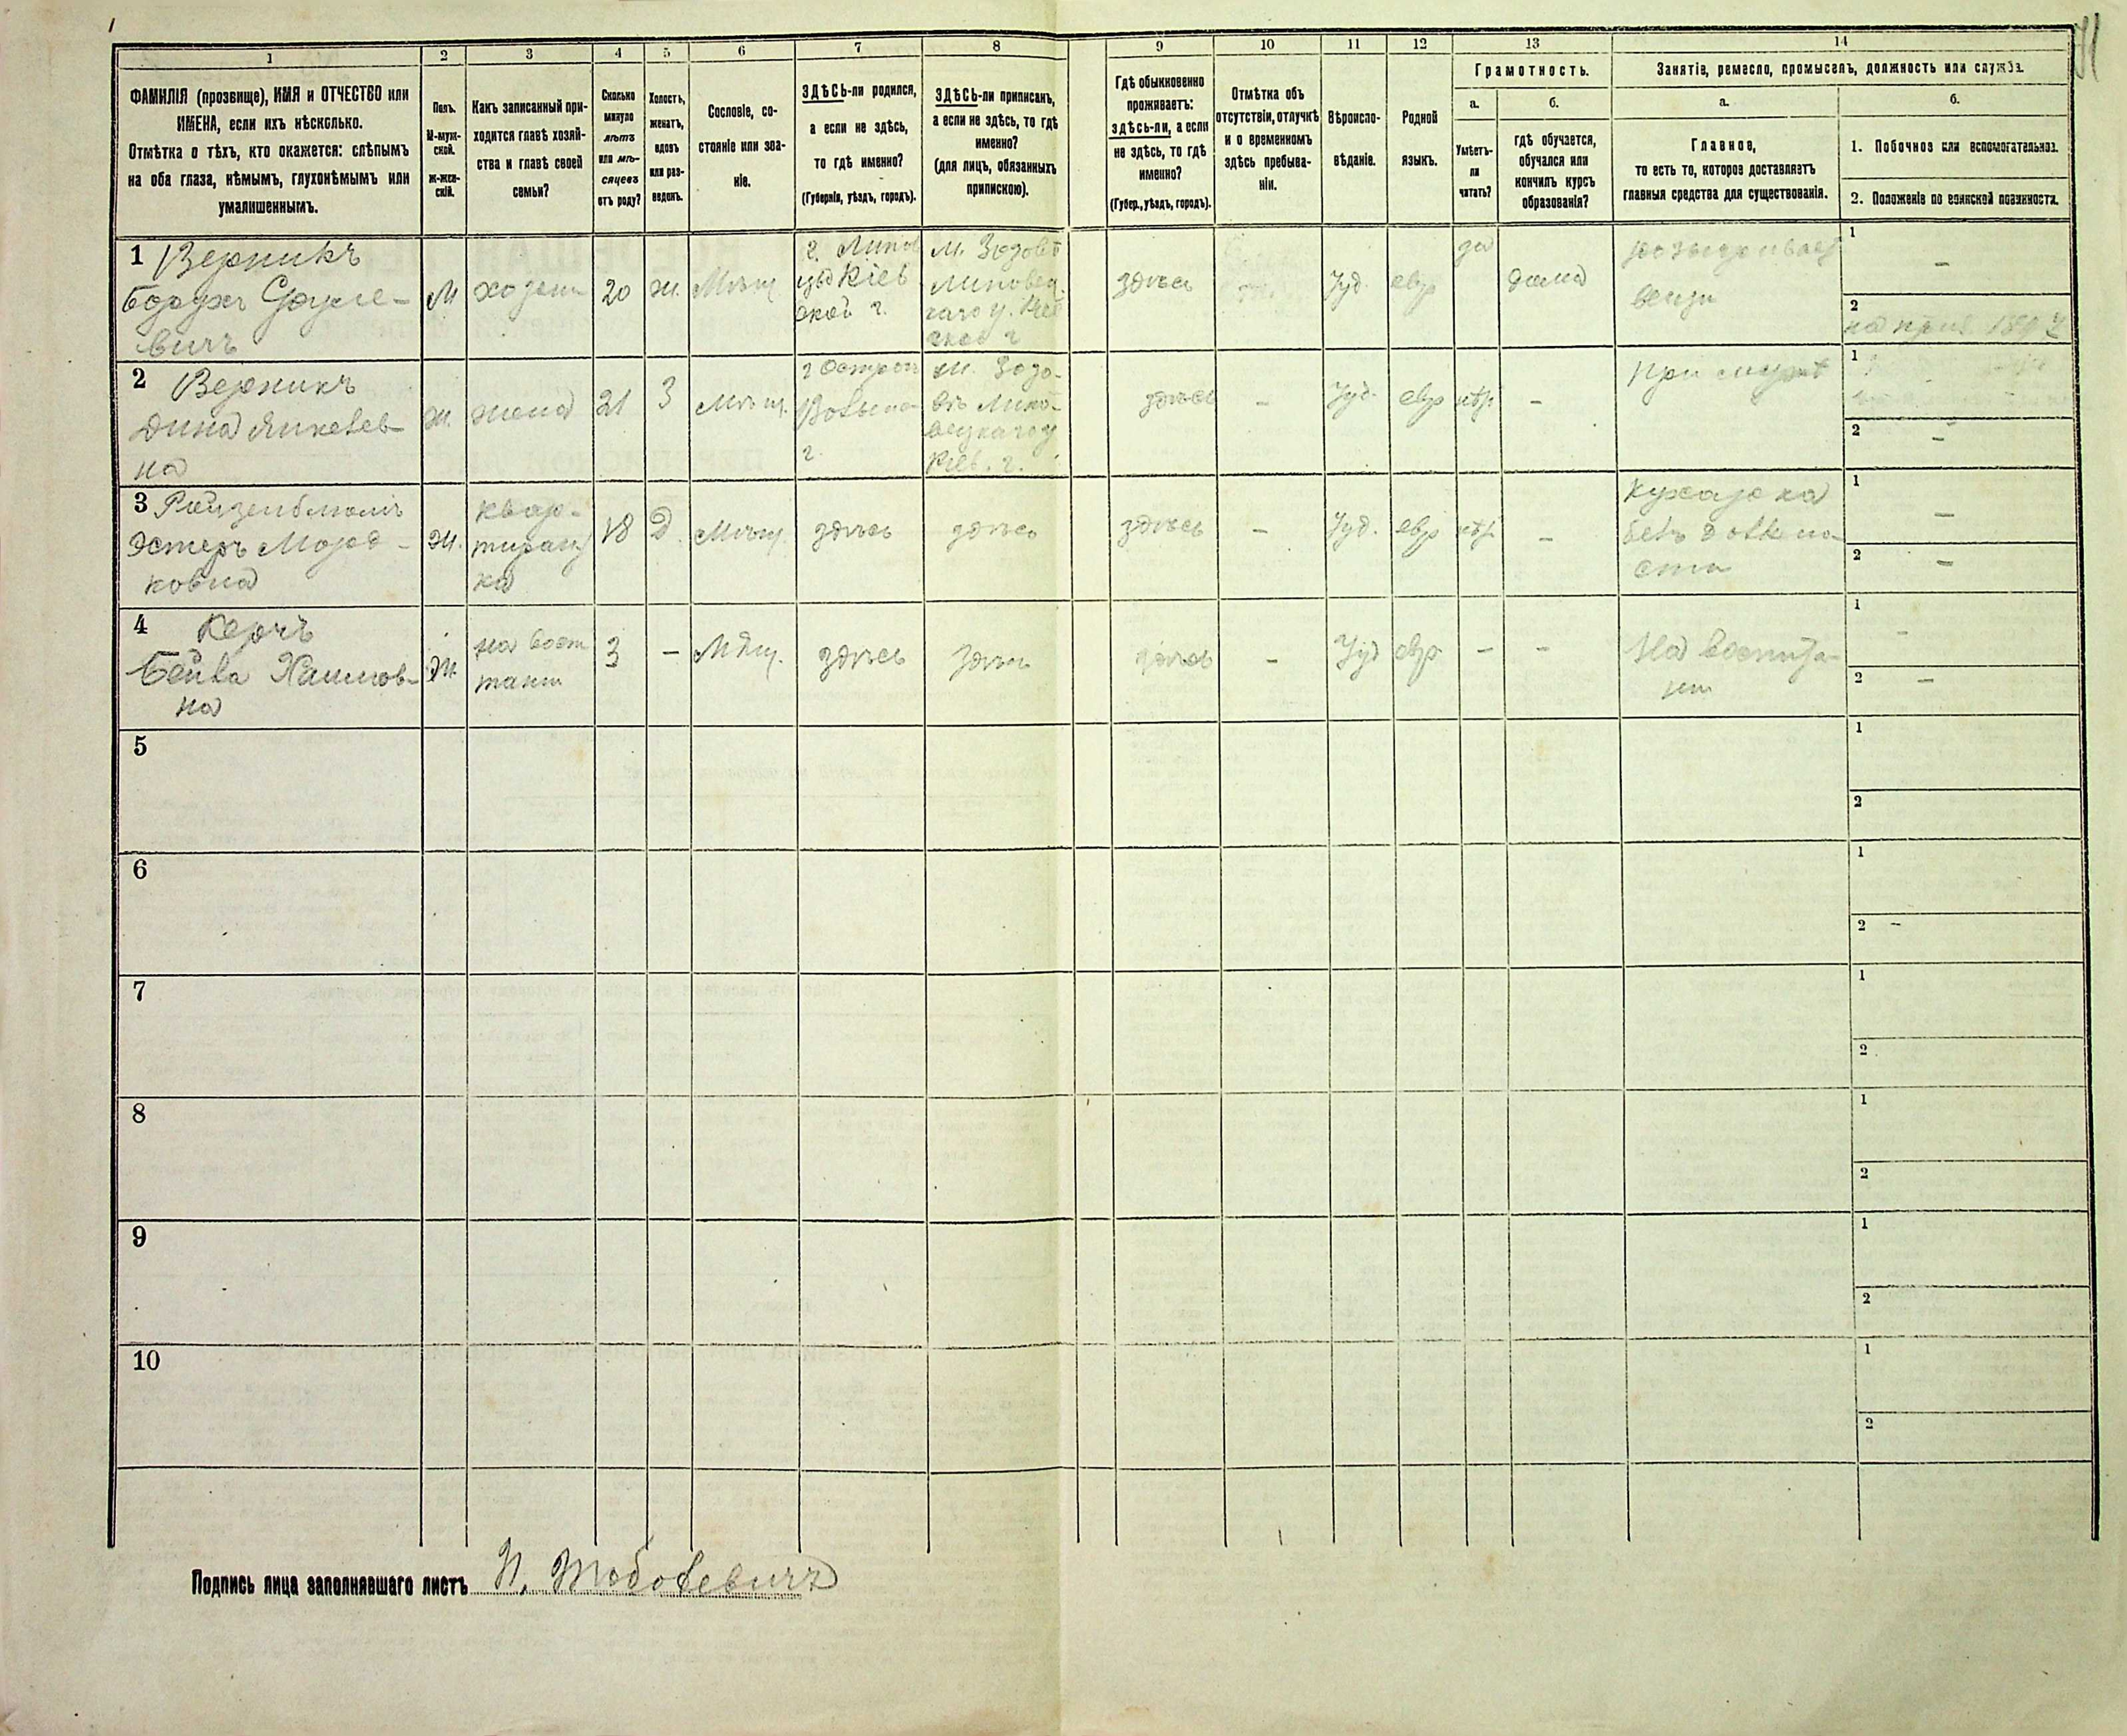 1 2 3 4 5 6 7 8 9 10 11 12 13 14
ФАМИЛІЯ (прозвище), ИМЯ и ОТЧЕСТВО или
ИМЕНА, если ихъ нѣсколько.
Отмѣтка о тѣхъ, кто окажется: слѣпымъ
на оба глаза, нѣмымъ, глухонѣмымъ или
умалишеннымъ.
Полъ.
М-муж-
ской.
ж-жен-
скій.
Какъ записанный при-
ходится главѣ хозяй-
ства и главѣ своей
семьи?
Сколько
минуло
лѣтъ
или мѣ-
сяцевъ
отъ роду?
Холостъ,
женатъ,
вдовъ
или раз-
веденъ.
Сословіе, со-
стояніе или зва-
ніе.
ЗДѢСЬ-ли родился,
а если не здѣсь,
то гдѣ именно?
(Губернія, уѣздъ, городъ).
ЗДѢСЬ-ли приписанъ,
а если не здѣсь, то гдѣ
именно?
(для лицъ, обязанныхъ
припискою).
Гдѣ обыкновенно
проживаетъ:
здѣсь-ли, а если
не здѣсь, то гдѣ
именно?
(Губер., уѣздъ, городъ).
Отмѣтка объ
отсутствіи, отлучкѣ
и о временномъ
здѣсь пребыва-
ніи.
Вѣроиспо-
вѣданіе.
Родной
языкъ.
Грамотность.
а.
Умѣетъ-
ли
читать?
б.
гдѣ обучается,
обучался или
кончилъ курсъ
образованія?
Занятіе, ремесло, промыселъ, должность или служба.
а.
Главное,
то есть то, которое доставляетъ
главныя средства для существованія.
б.
1. Побочное или вспомогательное.
2. Положеніе по воинской повинности.
1 Верникъ
Борухъ Сруле-
вичъ
М
хозяин
20
ж.
Мѣщ
г. Липов
цы Кіев
ской г.
м. Зозовъ
Липовец
каго у. Кіев
ской г
здѣсь
Іуд.
евр
да
дома
1 –
2
2 Верникъ
Дина Янкелев
на
ж.
жена
21
З
Мѣщ.
г Острог
Волын
г.
м. Зозо-
въ Липо-
вецкаго у
Кіев. г.
здѣсь
–
Іуд.
евр
нѣт
–
При мужѣ
1
2 –
3
Эстеръ Морд-
ковна
ж.
квар-
тирант
ка
18
Д.
Мѣщ.
здѣсь
здѣсь
здѣсь
–
Іуд.
евр
нѣт
–
Кухарка
безъ должно
сти
1 –
2 –
4 Керчъ
Бейла Хаимов-
на
ж.
на восп
тани
3
–
Мѣщ.
здѣсь
здѣсь
здѣсь
–
Іуд
евр
–
–
На воспита-
ни
1 –
2 –
5 1
2
6 1
2 –
7 1
2
8 1
2
9 1
2
10 1
2
Подпись лица заполнявшаго листъ